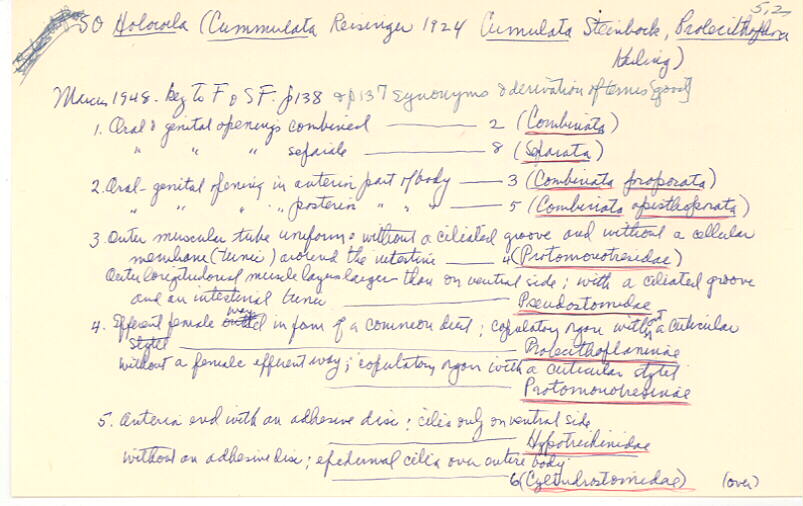 5.2
SO Holocoela (Cummulata Reisinger 1924 Cumulata Steinbock, Prolecithophora
Karling)
Marcus 1948. key to F & SF. p138 & p137 synonyms & derivation of terms [good]
1. Oral & genital openings combined — 2 (Combinata)
" " " separate — 8 (Separata)
2. Oral-genital opening in anterior part of body — 3 (Combinata proporata)
" " " " posterior " " " — 5 (Combinata opisthoporata)
3. Outer muscular tube uniform: without a ciliated groove and without a cellular
membrane (tunic) around the intestine — 4 (Protomonotresidae)
Outer longitudonal muscle layers larger than on ventral side; with a ciliated groove
and an intestinal tunic — Pseudostomidae
4. Efferent female way in form of a common duct; copulatory organ without a cuticular
stylet — Prolecithoplaninae
without a female efferent way; copulatory organ with a cuticular stylet
Protomonotresinae
5. Anterior end with an adhesive disc; cilia only on ventral side
— Hypotrichinidae
without an adhesive disc; epidermal cilia over entire body
— 6 (Cylindrostomidae) (over)